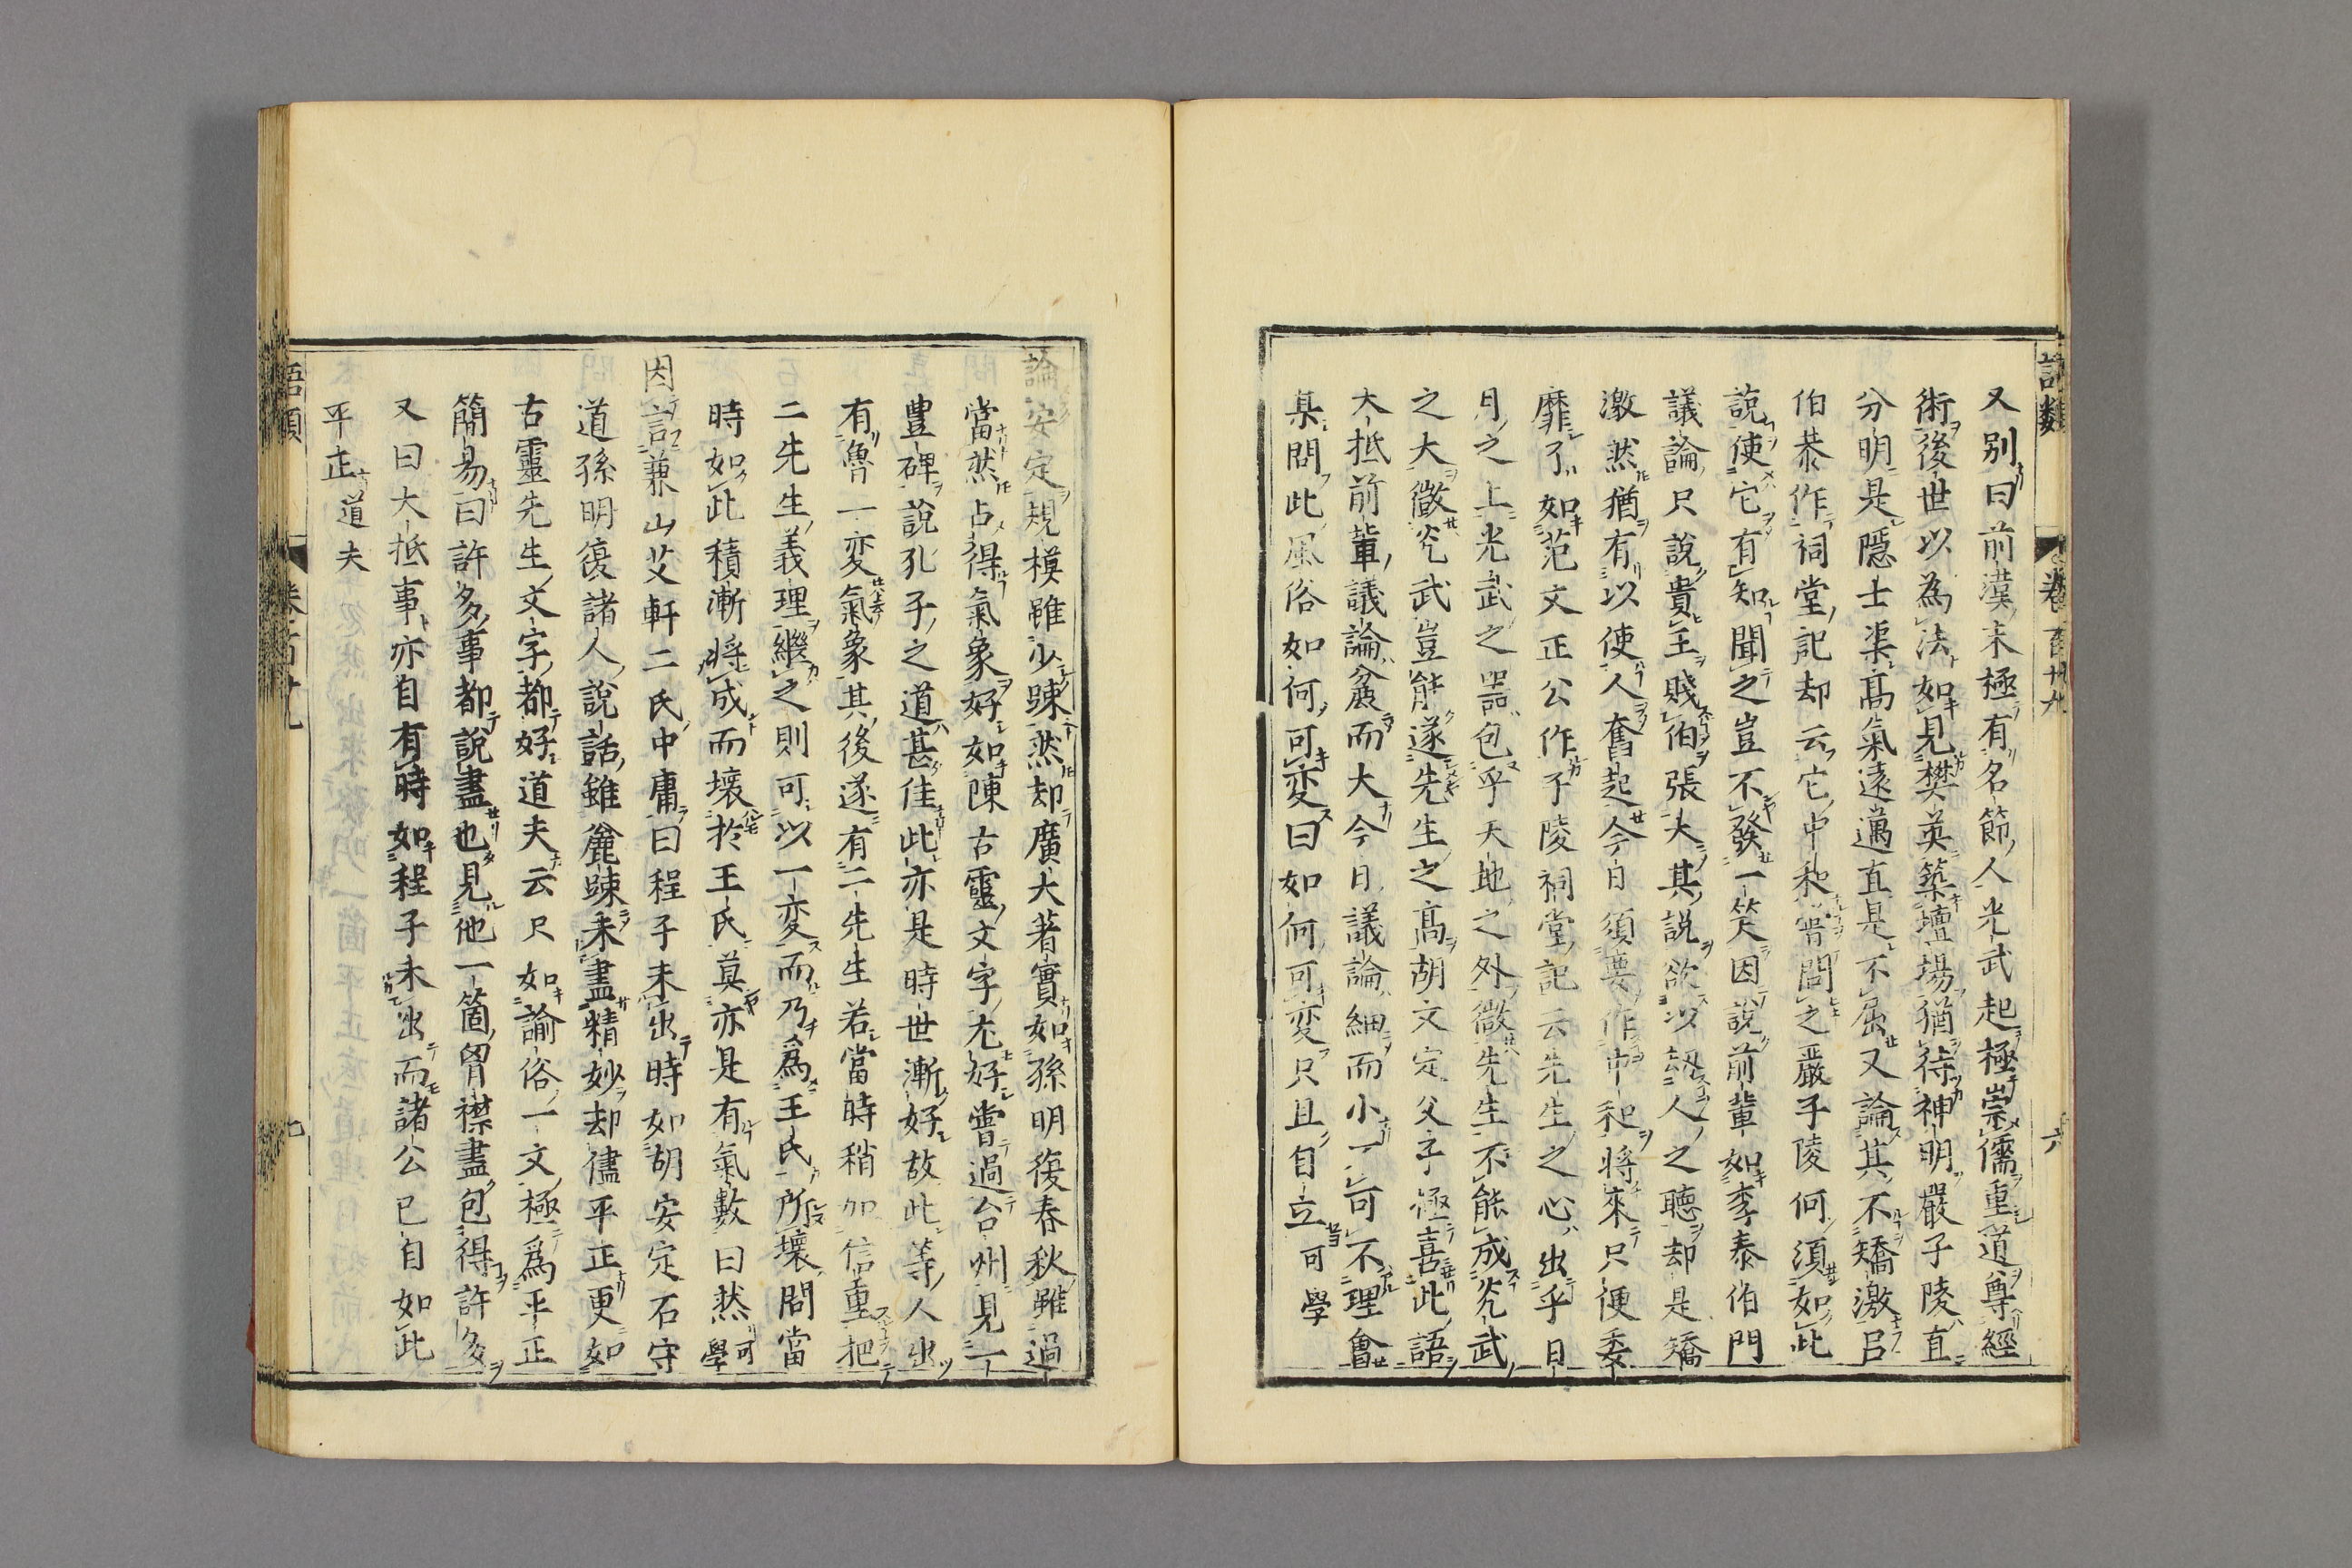 語類 卷百廿九 六
又別曰前漢末極有名節人光武起極崇儒重道尊經
術後世以為法如見樊英築壇場猶待神明嚴子陵直
分明是隱士渠高氣遠邁直是不屈又論其不矯激呂
伯恭作祠堂記却云它中和嘗問之嚴子陵何須如此
說使它有知聞之豈不發一笑因說前輩如李泰伯門
議論只說貴王賤伯張大其說欲以劫人之聽却是矯
激然猶有以使人奮起今日須要作中和將來只便委
靡了如范文正公作子陵祠堂記云先生之心出乎日
月之上光武之器包乎天地之外微先生不能成光武
之大微光武豈能遂先生之高胡文定父子極喜此語
大抵前輩議論麄而大今日議論細而小一一可不理會
某問此風俗如何可変曰如何可変只且自立可學
論安定規模雖少踈然却廣大著實如孫明復春秋雖過
當然占得氣象好如陳古靈文字尤好嘗過台州見一
豊碑說孔子之道甚佳此亦是時世漸好故此等人出
有魯一変氣象其後遂有二先生若當時稍加信重把
二先生義理繼之則可以一変而乃爲王氏所壞問當
時如此積漸將成而壞扵王氏莫亦是有氣數曰然可學
因言兼山艾軒二氏中庸曰程子未出時如胡安定石守
道孫明復諸人說話雖麄踈未盡精妙却儘平正更如
古靈先生文字都好道夫云只如諭俗一文極爲平正
簡易曰許多事都說盡也見他一箇胷襟盡包得許多
又曰大抵事亦自有時如程子未出而諸公已自如此
平正道夫
語類 卷百廿九 七